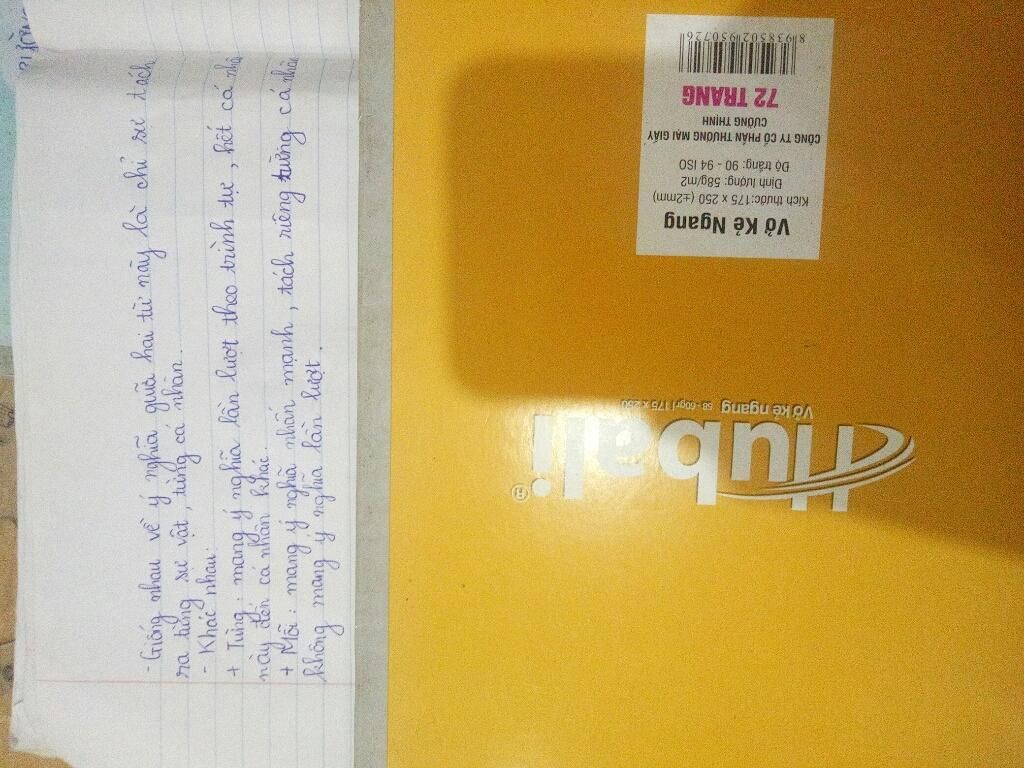 - Giống nhau về ý nghĩa giữa hai từ này là chỉ sự tách
ra từng sự vật, từng cá nhân.
- Khác nhau:
+ Từng: mang ý nghĩa lần lượt theo trình tự, hết cá nhân
này đến cá nhân khác.
+ Mỗi: mang ý nghĩa nhấn mạnh, tách riêng từng cá nhân
không mang ý nghĩa lần lượt.
Hubali®
Vở kẻ ngang 58-60gr/175 x 250
Vở Kẻ Ngang
Kích thước:175 x 250 (±2mm)
Định lượng: 58g/m2
Độ trắng: 90 - 94 ISO
CÔNG TY CỔ PHẦN THƯƠNG MẠI GIẤY
CƯỜNG THỊNH
72 TRANG
8 938502 950726